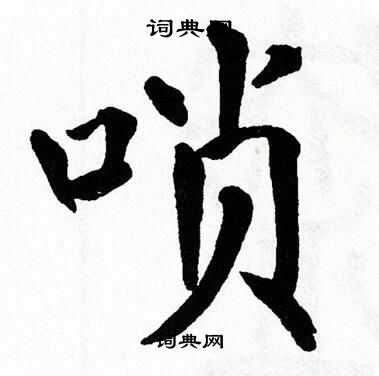 词典网
唢
词典网